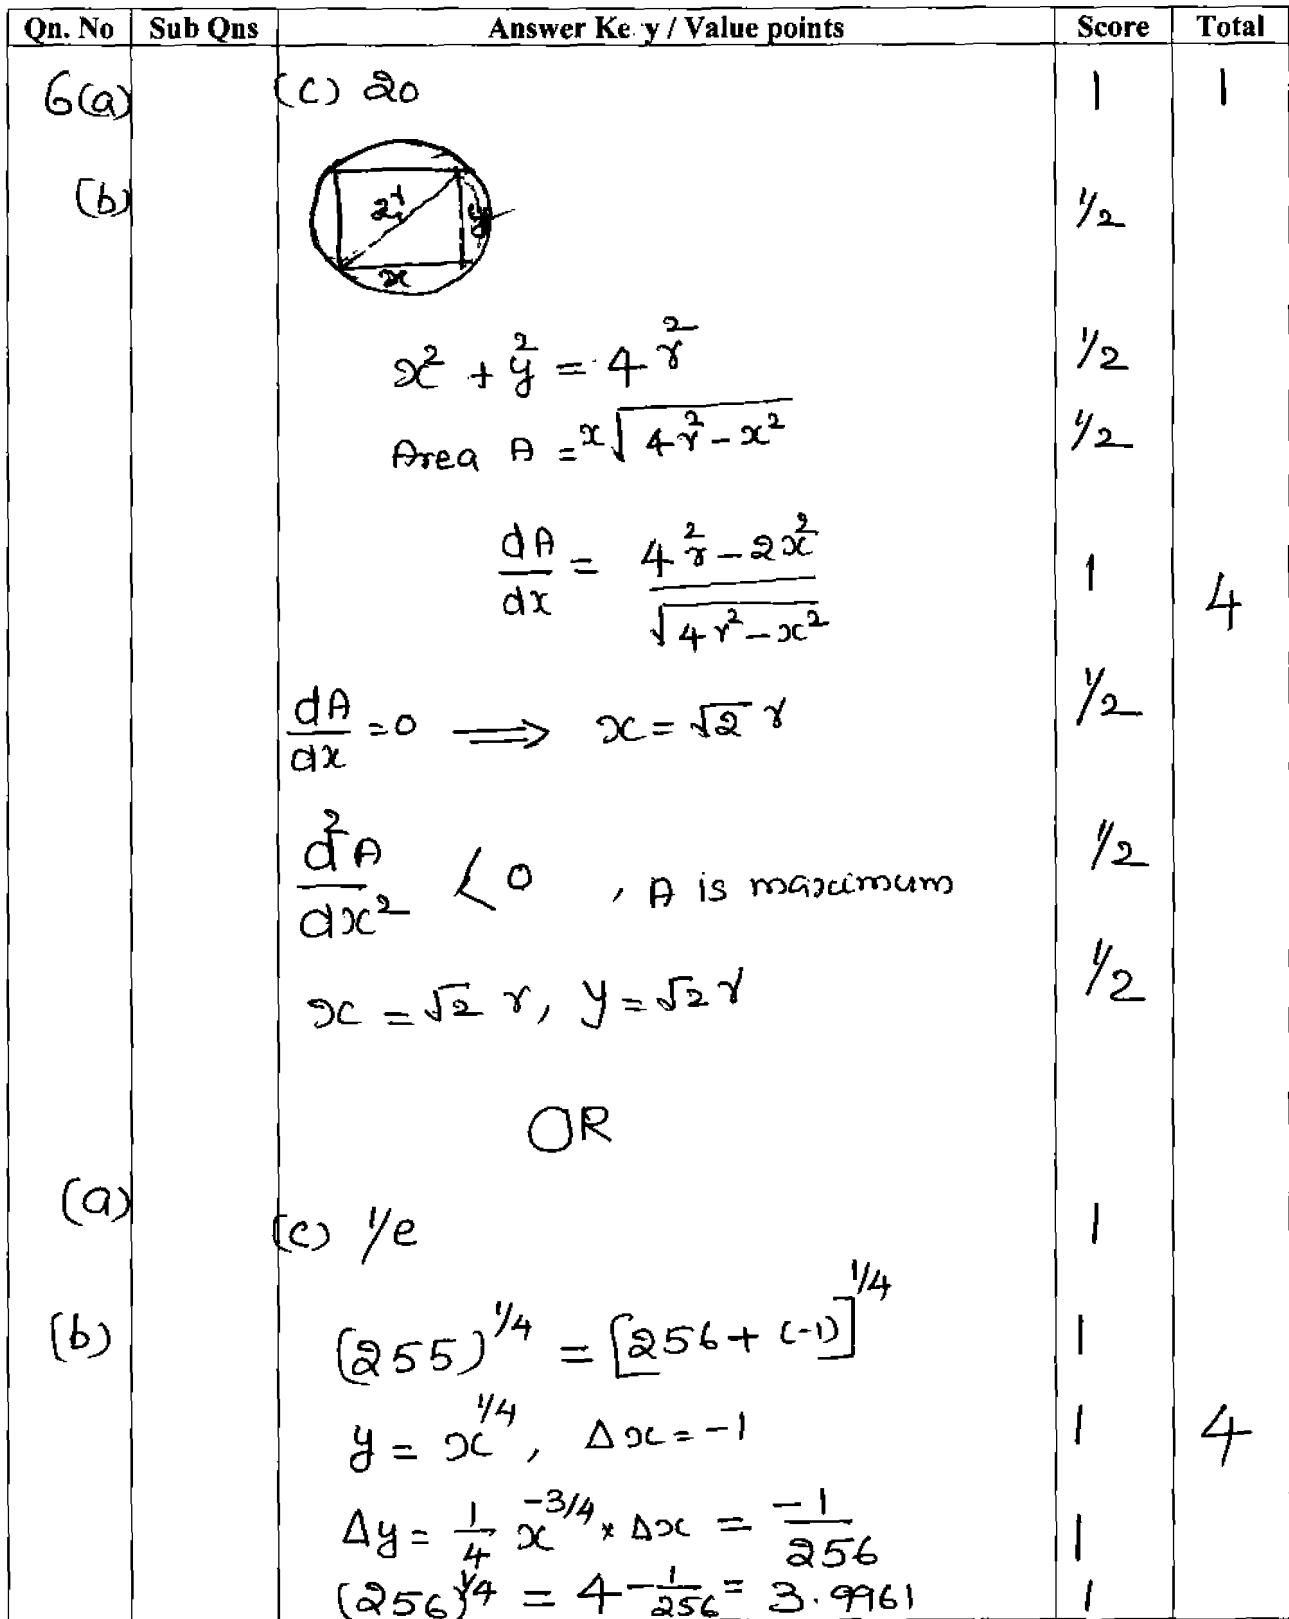 Qn. No Sub Qns Answer Ke y / Value points Score Total
6(a) (C) 20 1 1
(b) 2r y 1/2
x
x² + y² = 4r² 1/2
Area A = x√(4r² - x²) 1/2
dA/dx = (4r² - 2x²)/√(4r² - x²) 1 4
dA/dx = 0 ⟹ x = √2 r 1/2
d²A/dx² < 0 , A is maximum 1/2
x = √2 r, y = √2 r 1/2
OR
(a) (c) 1/e 1
(b) (255)^1/4 = [256 + (-1)]^1/4 1
y = x^1/4, Δx = -1 1 4
Δy = 1/4 x^-3/4 × Δx = -1/256 1
(256)^1/4 = 4 - 1/256 = 3.9961 1